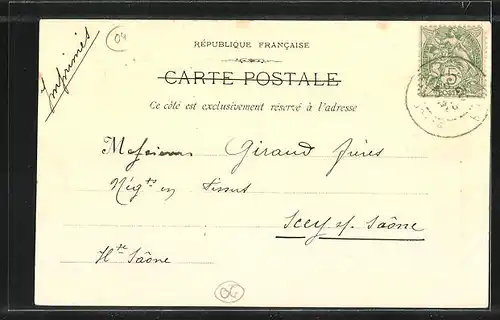 Imprimés
04
RÉPUBLIQUE FRANÇAISE
CARTE POSTALE
Ce côté est exclusivement réservé à l'adresse
5
Messieurs Giraud frères
Négts en Tissus
Scey s/ Saône
Hte Saône
OG